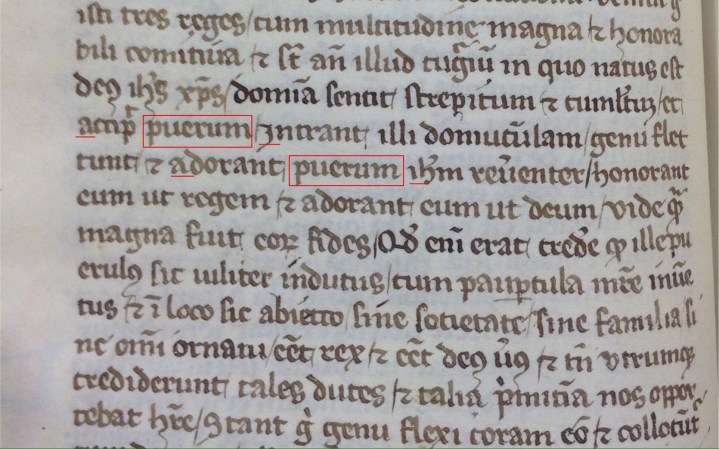 isti tres reges / cum multitudine magna ⁊ honora
bili comitiua ⁊ st̄ an̄ illud tuguͥū in quo natus est
deꝰ ih̄s xp̄s / domīa sentit strepitum ⁊ cumlt̄ū / et
accipͥt puerum / intrant illi domūculam / genu flet
tunt ⁊ adorant puerum ih̄m reūenter / honorant
eum ut regem ⁊ adorant eum ut deum / vide qͣ
magna fuit eoꝝ fides / Qd̄ em̄ erat cred̄e ꝙ ille pu
erulꝰ sic uiliter indutus / cum pauꝑtula mr̄e inuē
tus ⁊ ī loco sic abiecto / sine societate / sine familia si
ne om̄i ornatu / eēt rex ⁊ eēt deꝰ ūꝰ ⁊ tn̄ vtrumqꝫ
crediderunt tales duces ⁊ talia pͥncipia nos oppor
tebat hr̄e / Stant gͥ genu flexi coram eō ⁊ collocūt̄